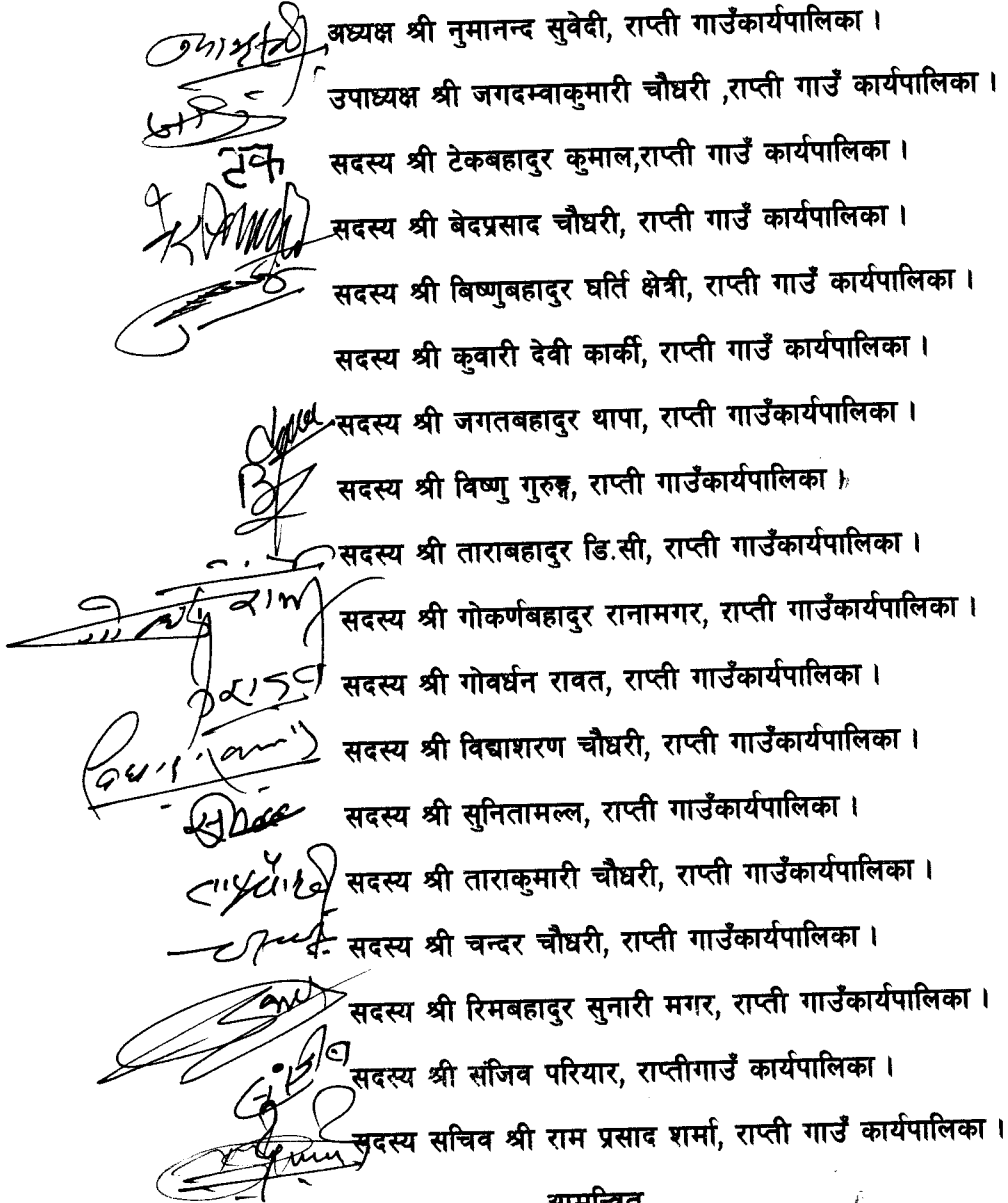 अध्यक्ष श्री नुमानन्द सुवेदी, राप्ती गाउँकार्यपालिका ।
उपाध्यक्ष श्री जगदम्वाकुमारी चौधरी ,राप्ती गाउँ कार्यपालिका ।
टेक सदस्य श्री टेकबहादुर कुमाल,राप्ती गाउँ कार्यपालिका ।
सदस्य श्री बेदप्रसाद चौधरी, राप्ती गाउँ कार्यपालिका ।
सदस्य श्री बिष्णुबहादुर घर्ति क्षेत्री, राप्ती गाउँ कार्यपालिका ।
सदस्य श्री कुवारी देवी कार्की, राप्ती गाउँ कार्यपालिका ।
सदस्य श्री जगतबहादुर थापा, राप्ती गाउँकार्यपालिका ।
सदस्य श्री विष्णु गुरुङ्ग, राप्ती गाउँकार्यपालिका ।
सदस्य श्री ताराबहादुर डि.सी, राप्ती गाउँकार्यपालिका ।
सदस्य श्री गोकर्णबहादुर रानामगर, राप्ती गाउँकार्यपालिका ।
सदस्य श्री गोवर्धन रावत, राप्ती गाउँकार्यपालिका ।
सदस्य श्री विद्याशरण चौधरी, राप्ती गाउँकार्यपालिका ।
सदस्य श्री सुनितामल्ल, राप्ती गाउँकार्यपालिका ।
सदस्य श्री ताराकुमारी चौधरी, राप्ती गाउँकार्यपालिका ।
सदस्य श्री चन्दर चौधरी, राप्ती गाउँकार्यपालिका ।
सदस्य श्री रिमबहादुर सुनारी मगर, राप्ती गाउँकार्यपालिका ।
सदस्य श्री संजिव परियार, राप्तीगाउँ कार्यपालिका ।
सदस्य सचिव श्री राम प्रसाद शर्मा, राप्ती गाउँ कार्यपालिका ।